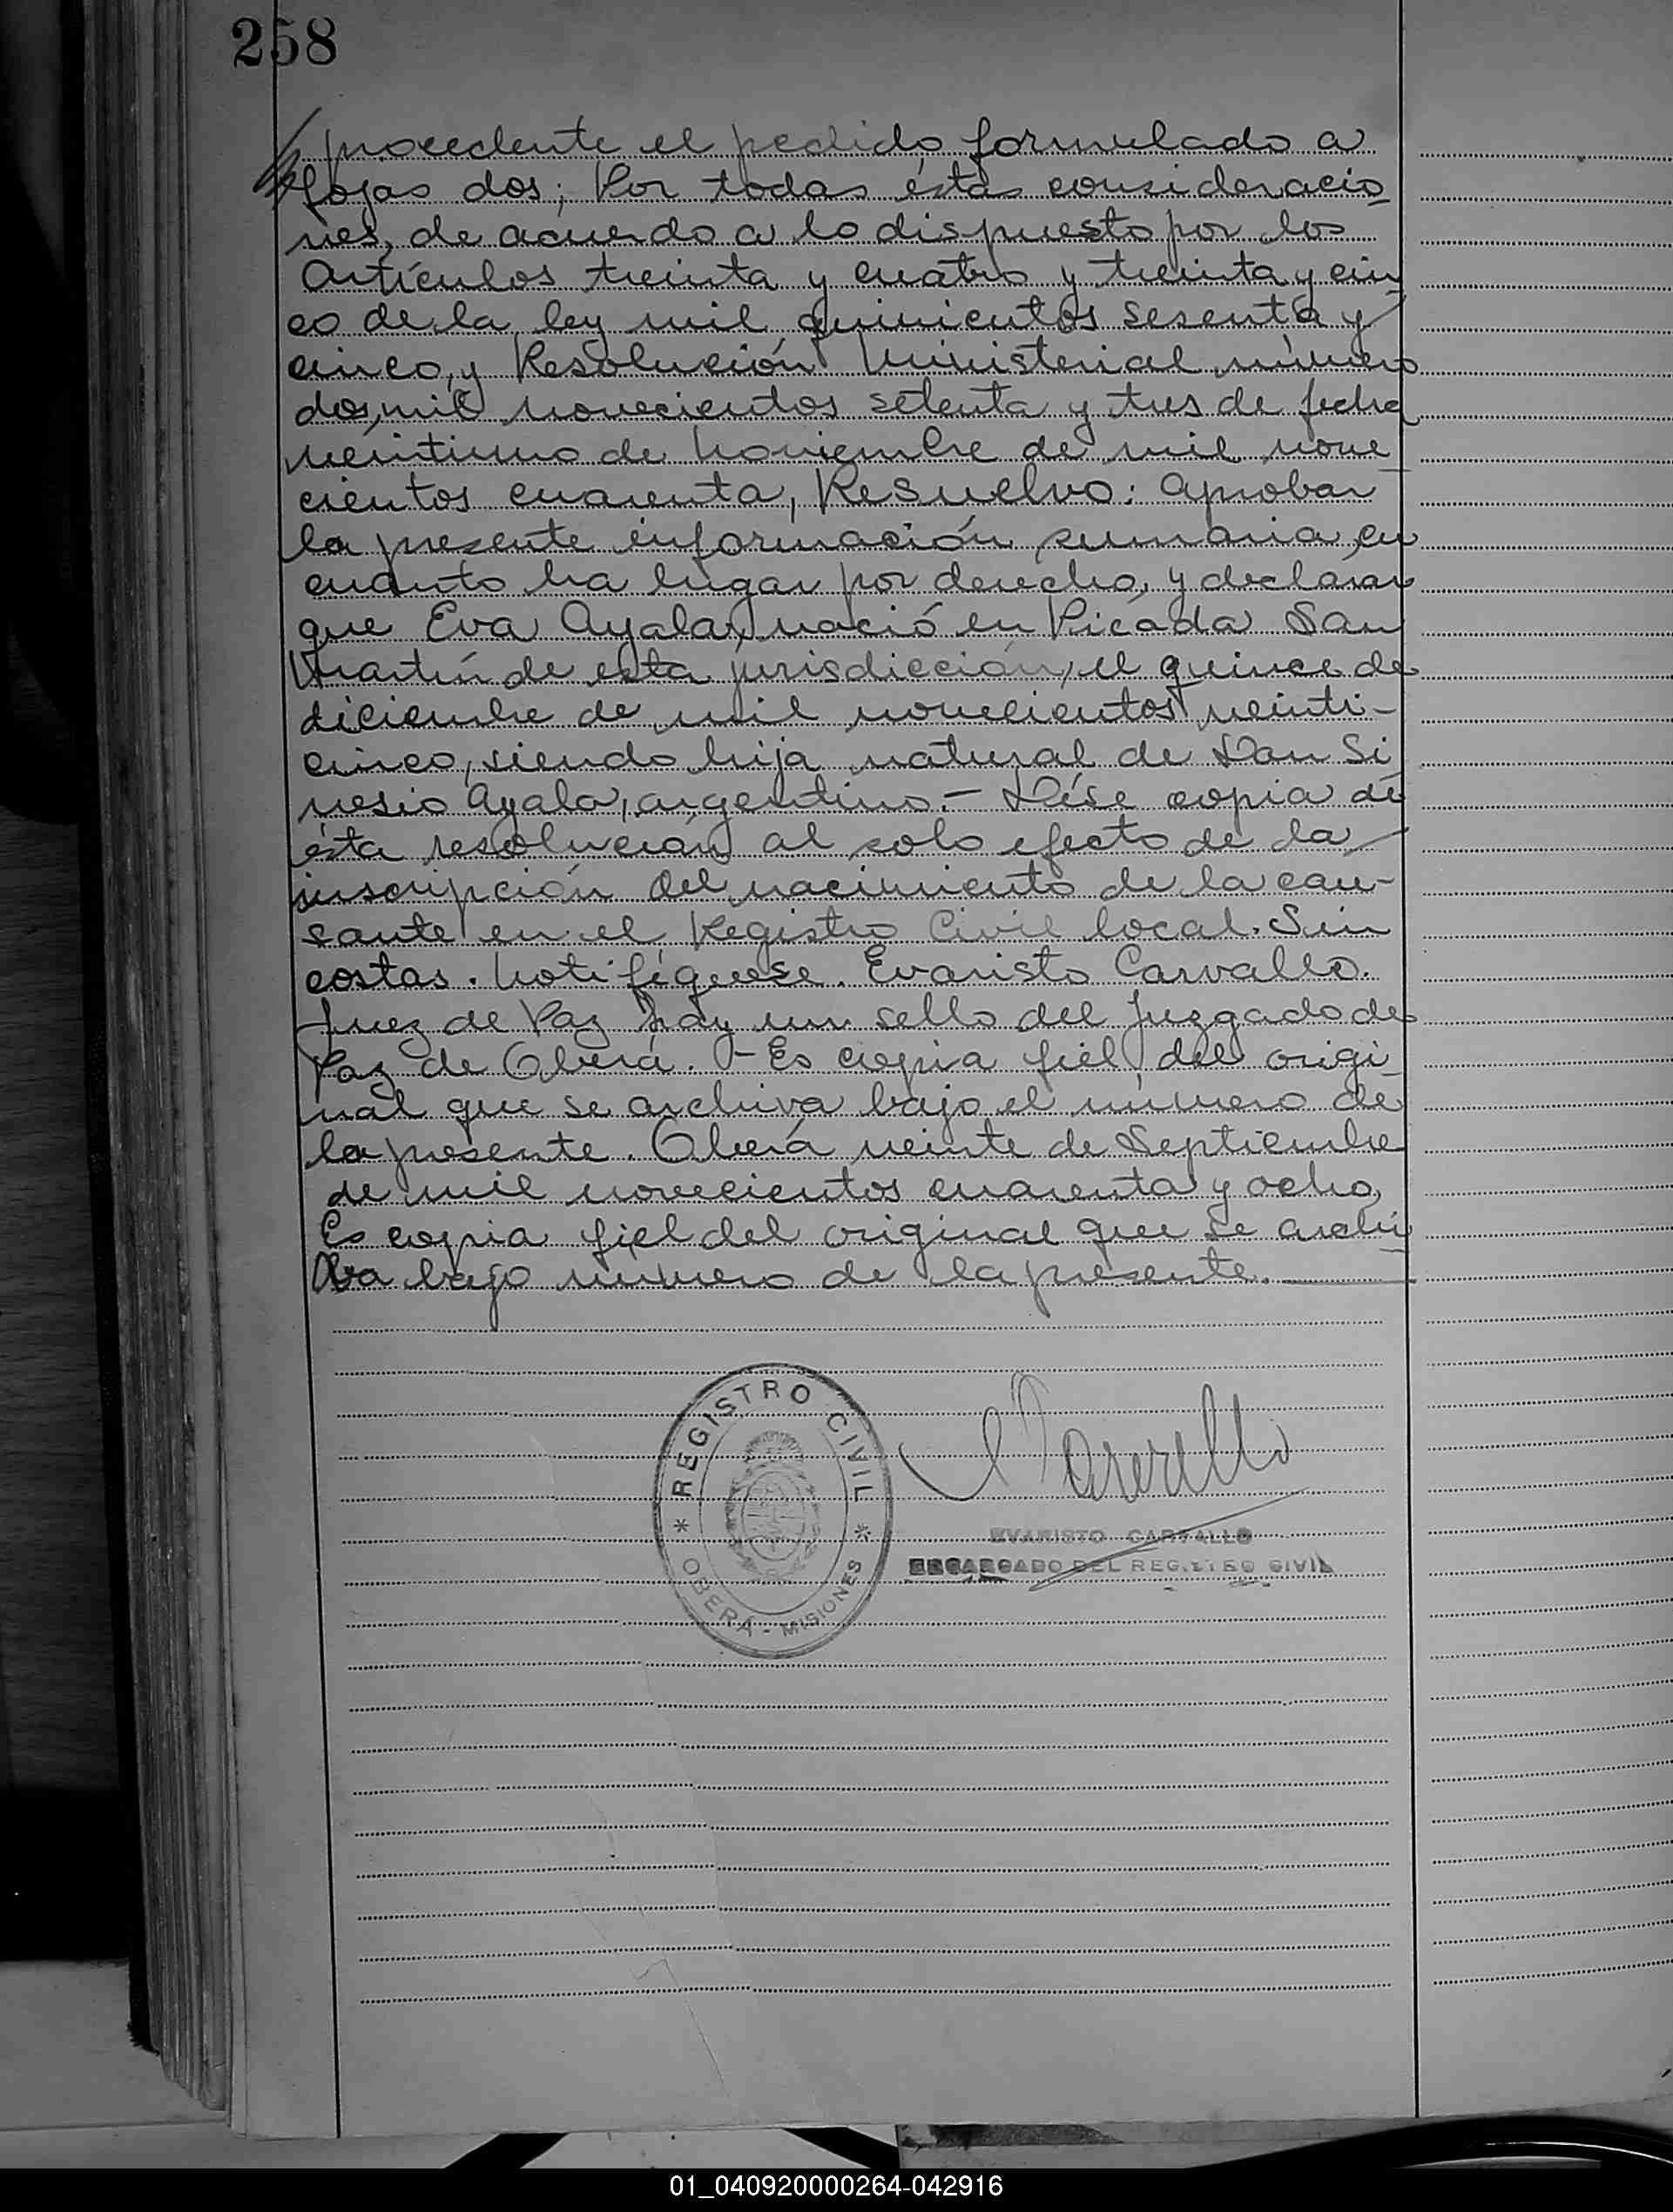 258
procedente el pedido formulado a
fojas dos; Por todas éstas consideracio
nes, de acuerdo a lo dispuesto por los
Artículos treinta y cuatro y treinta y cin
co de la ley mil quinientos sesenta y
cinco, y Resolución Ministerial número
dos mil novecientos setenta y tres de fecha
veintiuno de Noviembre de mil nove
cientos cuarenta, Resuelvo: Aprobar
la presente información sumaria en
cuanto ha lugar por derecho, y declarar
que Eva Ayala, nació en Picada San
Martín de esta jurisdicción, el quince de
diciembre de mil novecientos veinti-
cinco, siendo hija natural de Don Si
nesio Ayala, argentino.- Dése copia de
ésta resolución al solo efecto de la
inscripción del nacimiento de la cau-
sante en el Registro Civil local. Sin
costas. Notifíquese. Evaristo Carvallo.
Juez de Paz hay un sello del Juzgado de
Paz de Oberá. - Es copia fiel del origi
nal que se archiva bajo el número de
la presente. Oberá veinte de Septiembre
de mil novecientos cuarenta y ocho,
Es copia fiel del original que se archi
va bajo número de la presente.
REGISTRO CIVIL
* OBERÁ - MISIONES *
EVARISTO CARVALLO
ENCARGADO DEL REGISTRO CIVIL
01_040920000264-042916